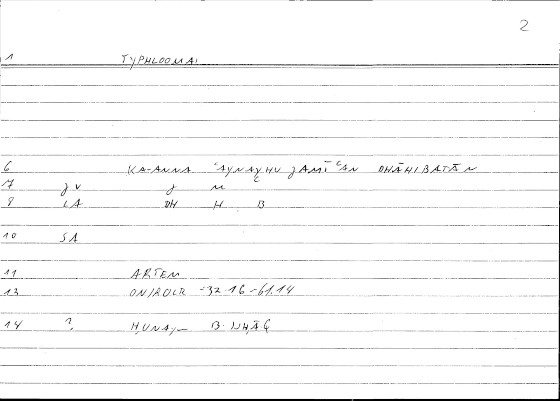 2
1 TYPHLOOMAI
6 KA-ANNA ʿAYNAYHU ǦAMĪʿAN DHĀHIBATĀN
7 ǧv ǧ m ʿ
8 LA DH H B
10 SA
11 ARTEM
13 ONIROCR -32.16-61.14
14 ? ḤUNAYN B. ISḤĀQ